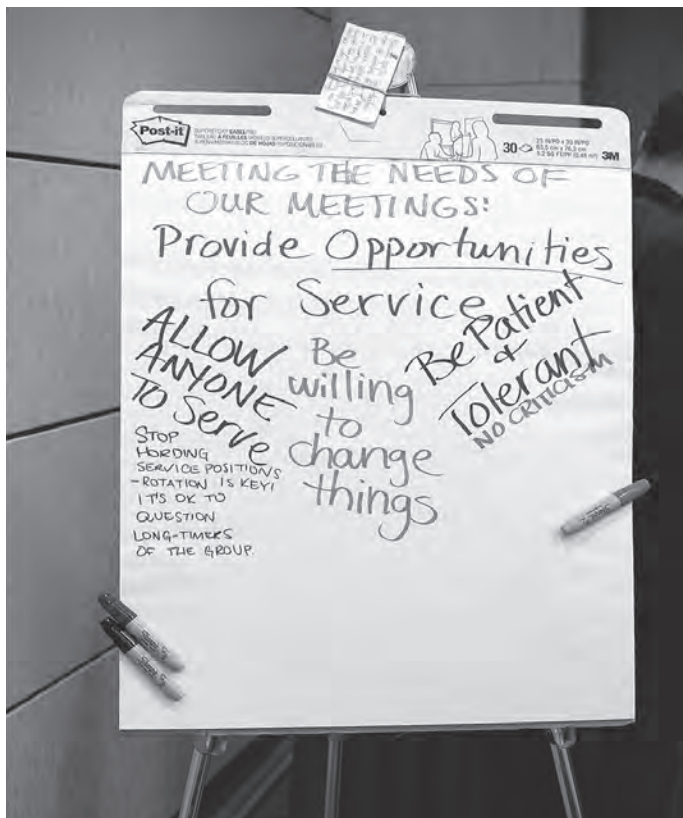 Post-it
30
3M
MEETING THE NEEDS OF
OUR MEETINGS:
Provide Opportunities
for Service
ALLOW
ANYONE
TO Serve
STOP
HORDING
SERVICE POSITIONS
-ROTATION IS KEY!
IT'S OK TO
QUESTION
LONG-TIMERS
OF THE GROUP.
Be
willing
to
change
things
Be Patient
&
Tolerant
NO CRITICISM